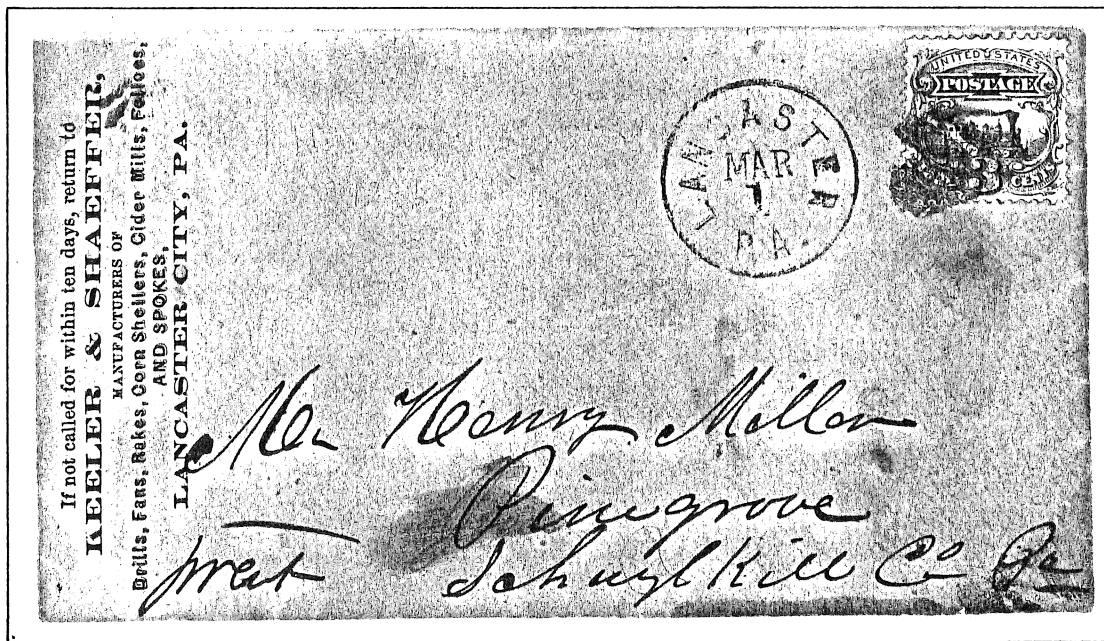 If not called for within ten days, return to
KEELER & SHAEFFER,
MANUFACTURERS OF
Drills, Fans, Rakes, Corn Shellers, Cider Mills, Felloes,
AND SPOKES,
LANCASTER CITY, PA.
LANCASTER
MAR
1
PA.
UNITED STATES
POSTAGE
3 CENTS
Mr Henry Miller
Pinegrove
Schuylkill Co Pa